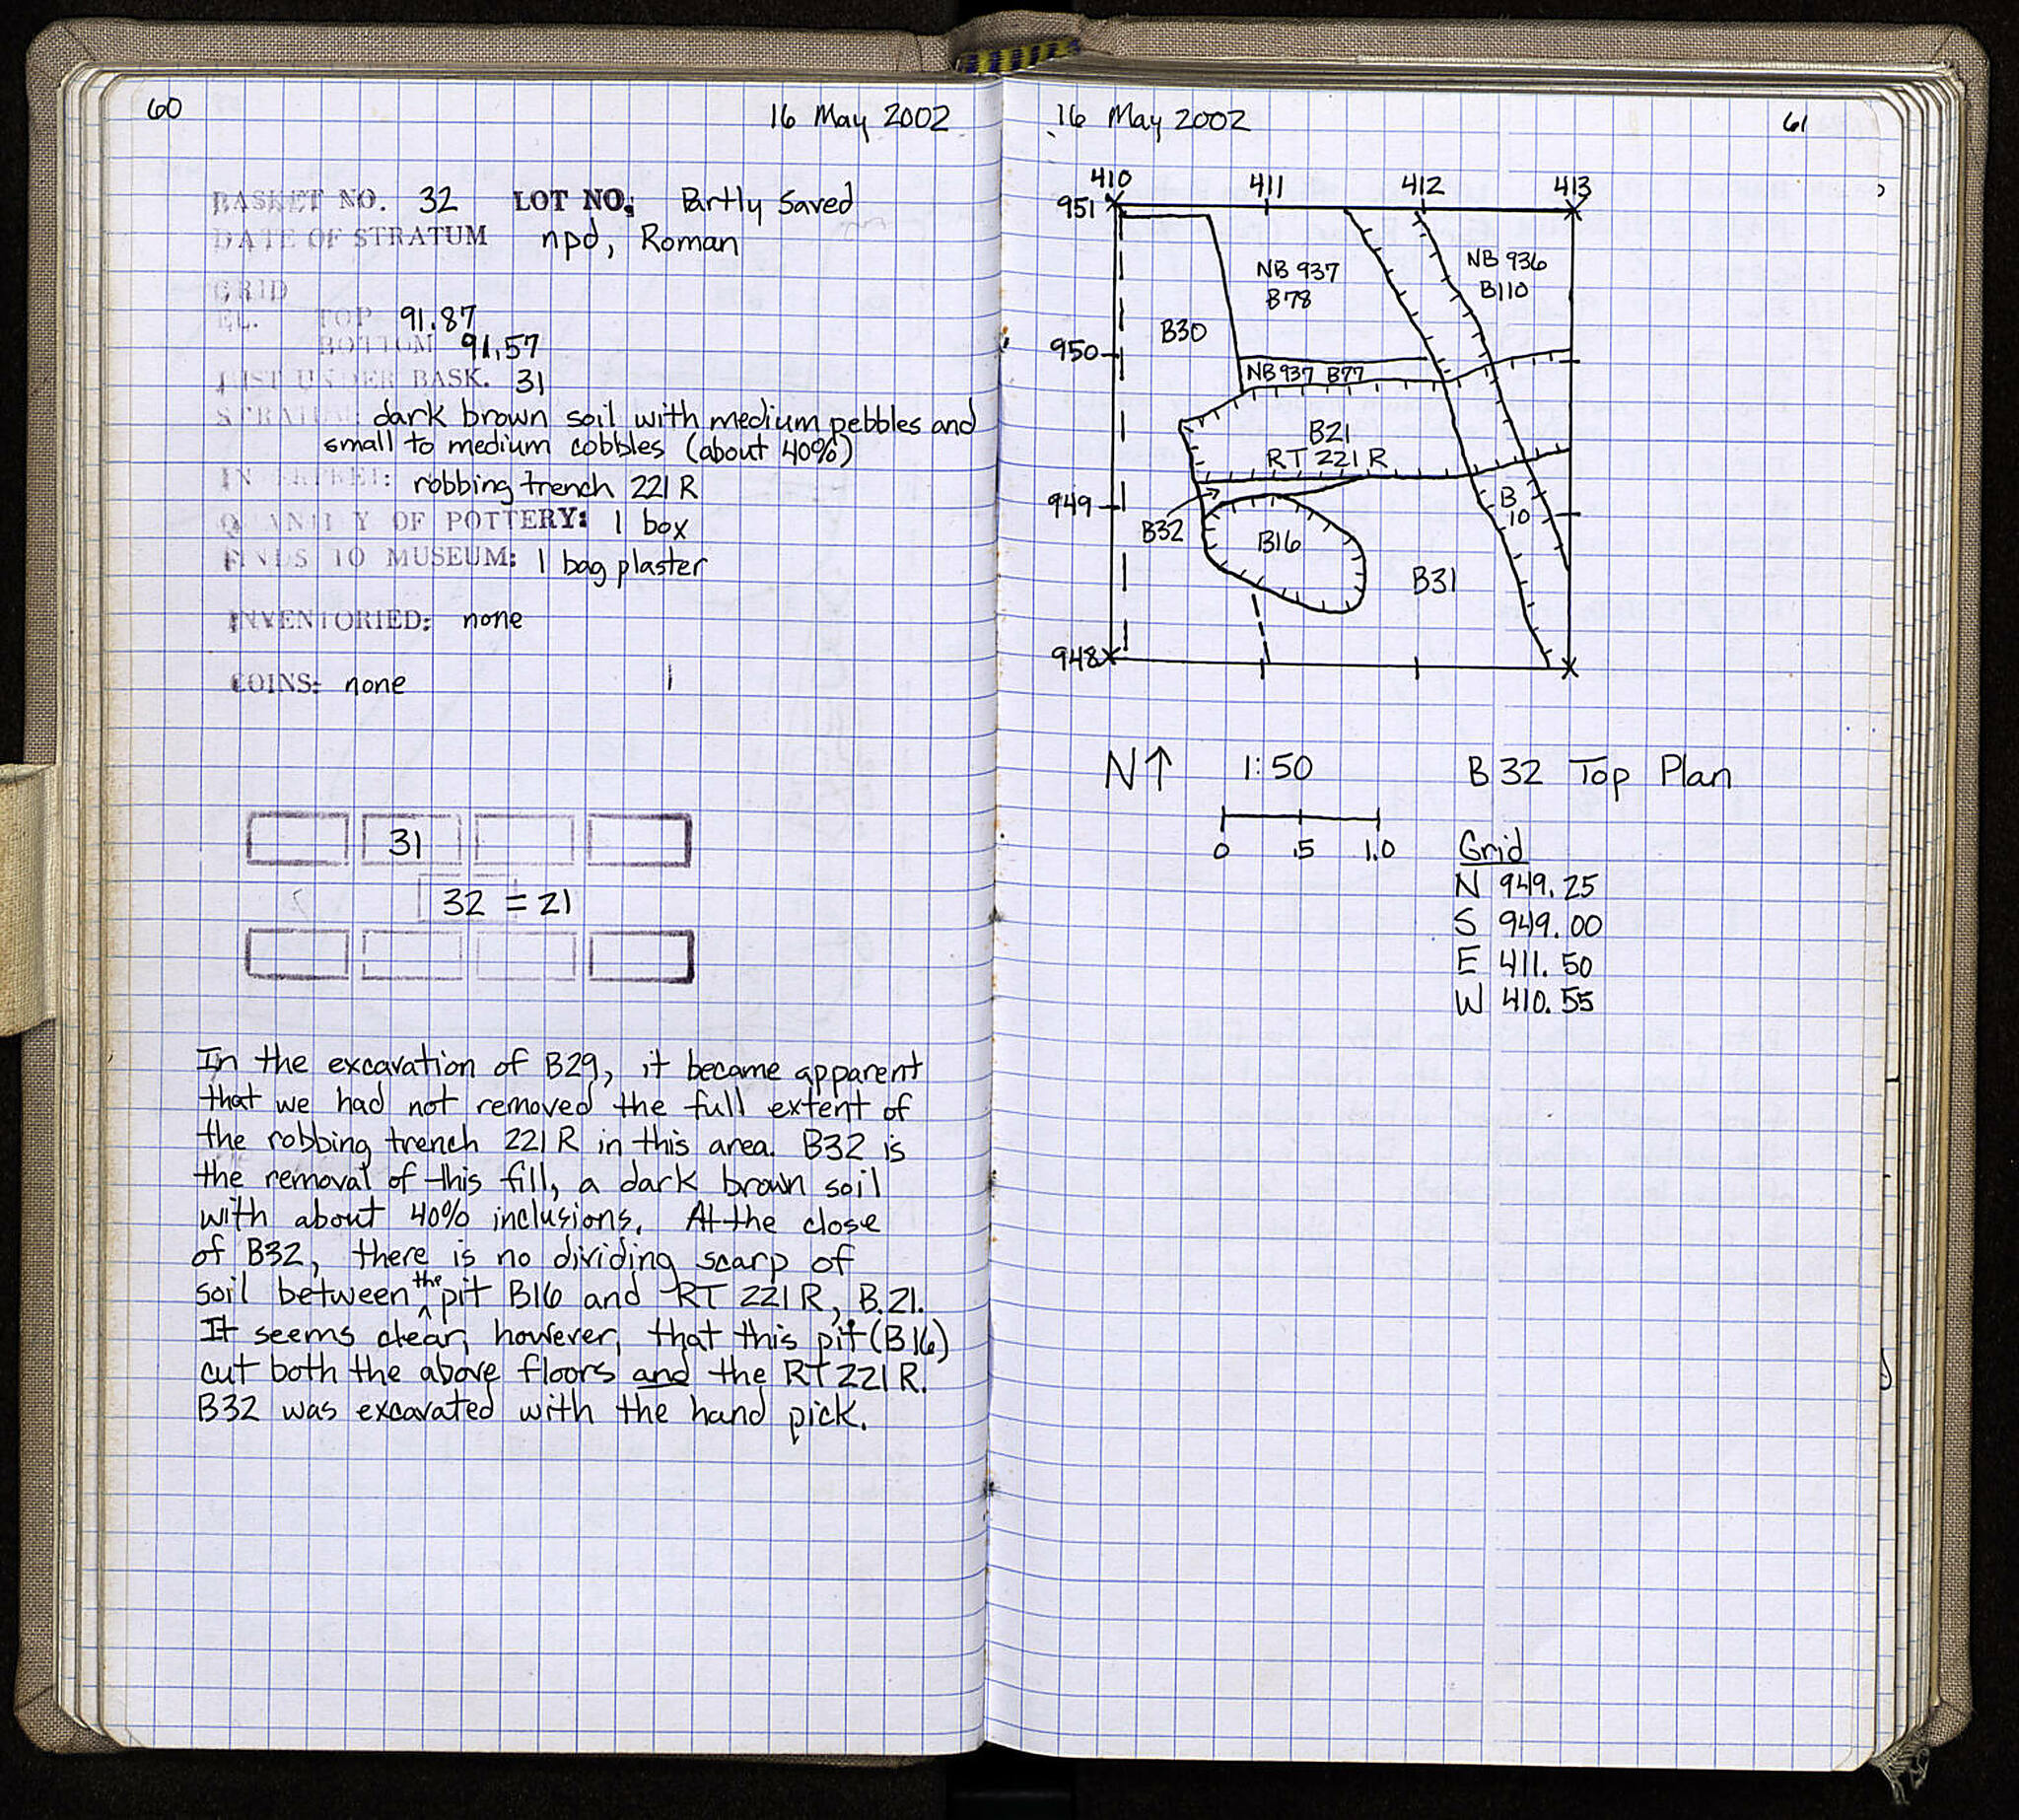 60
16 May 2002
BASKET NO. 32 LOT NO: Partly Saved
DATE OF STRATUM npd, Roman
GRID
EL. TOP 91.87
BOTTOM 91.57
JUST UNDER BASK. 31
STRATUM: dark brown soil with medium pebbles and
small to medium cobbles (about 40%)
INTERPRET: robbing trench 221 R
QUANTITY OF POTTERY: 1 box
FINDS TO MUSEUM: 1 bag plaster
INVENTORIED: none
COINS: none
31
32 = 21
In the excavation of B29, it became apparent
that we had not removed the full extent of
the robbing trench 221 R in this area. B32 is
the removal of this fill, a dark brown soil
with about 40% inclusions. At the close
of B32, there is no dividing scarp of
soil between the pit B16 and RT 221 R, B.21.
It seems clear, however, that this pit (B16)
cut both the above floors and the RT 221 R.
B32 was excavated with the hand pick.
16 May 2002
61
410 411 412 413
951
NB 937
B78
NB 936
B110
B30
950
NB 937 B77
B21
RT 221 R
949
B32
B16
B
10
B31
948
N↑ 1:50 B 32 Top Plan
0 .5 1.0
Grid
N 949.25
S 949.00
E 411.50
W 410.55